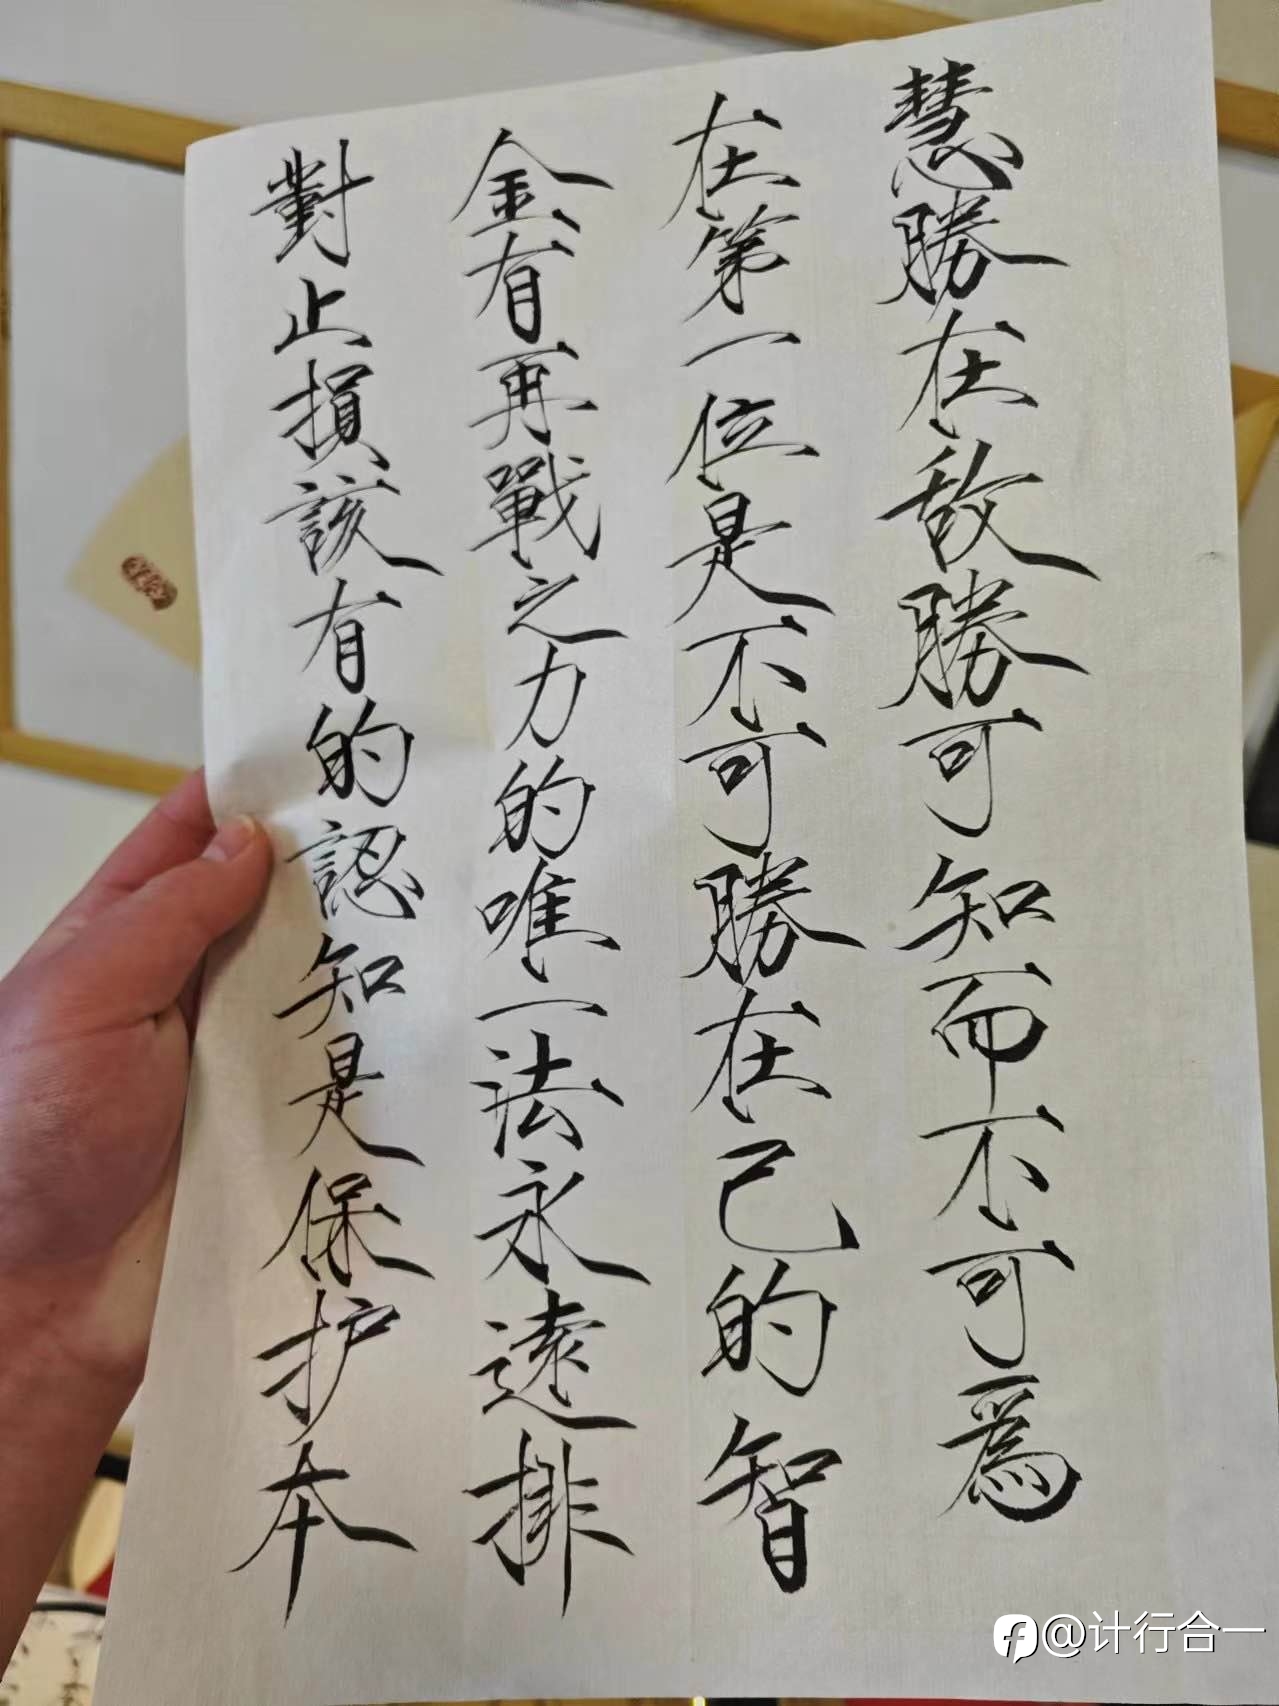 對止損該有的認知是保护本
金有再戰之力的唯一法永遠排
在第一位是不可勝在己的智
慧勝在敌勝可知而不可爲
@计行合一